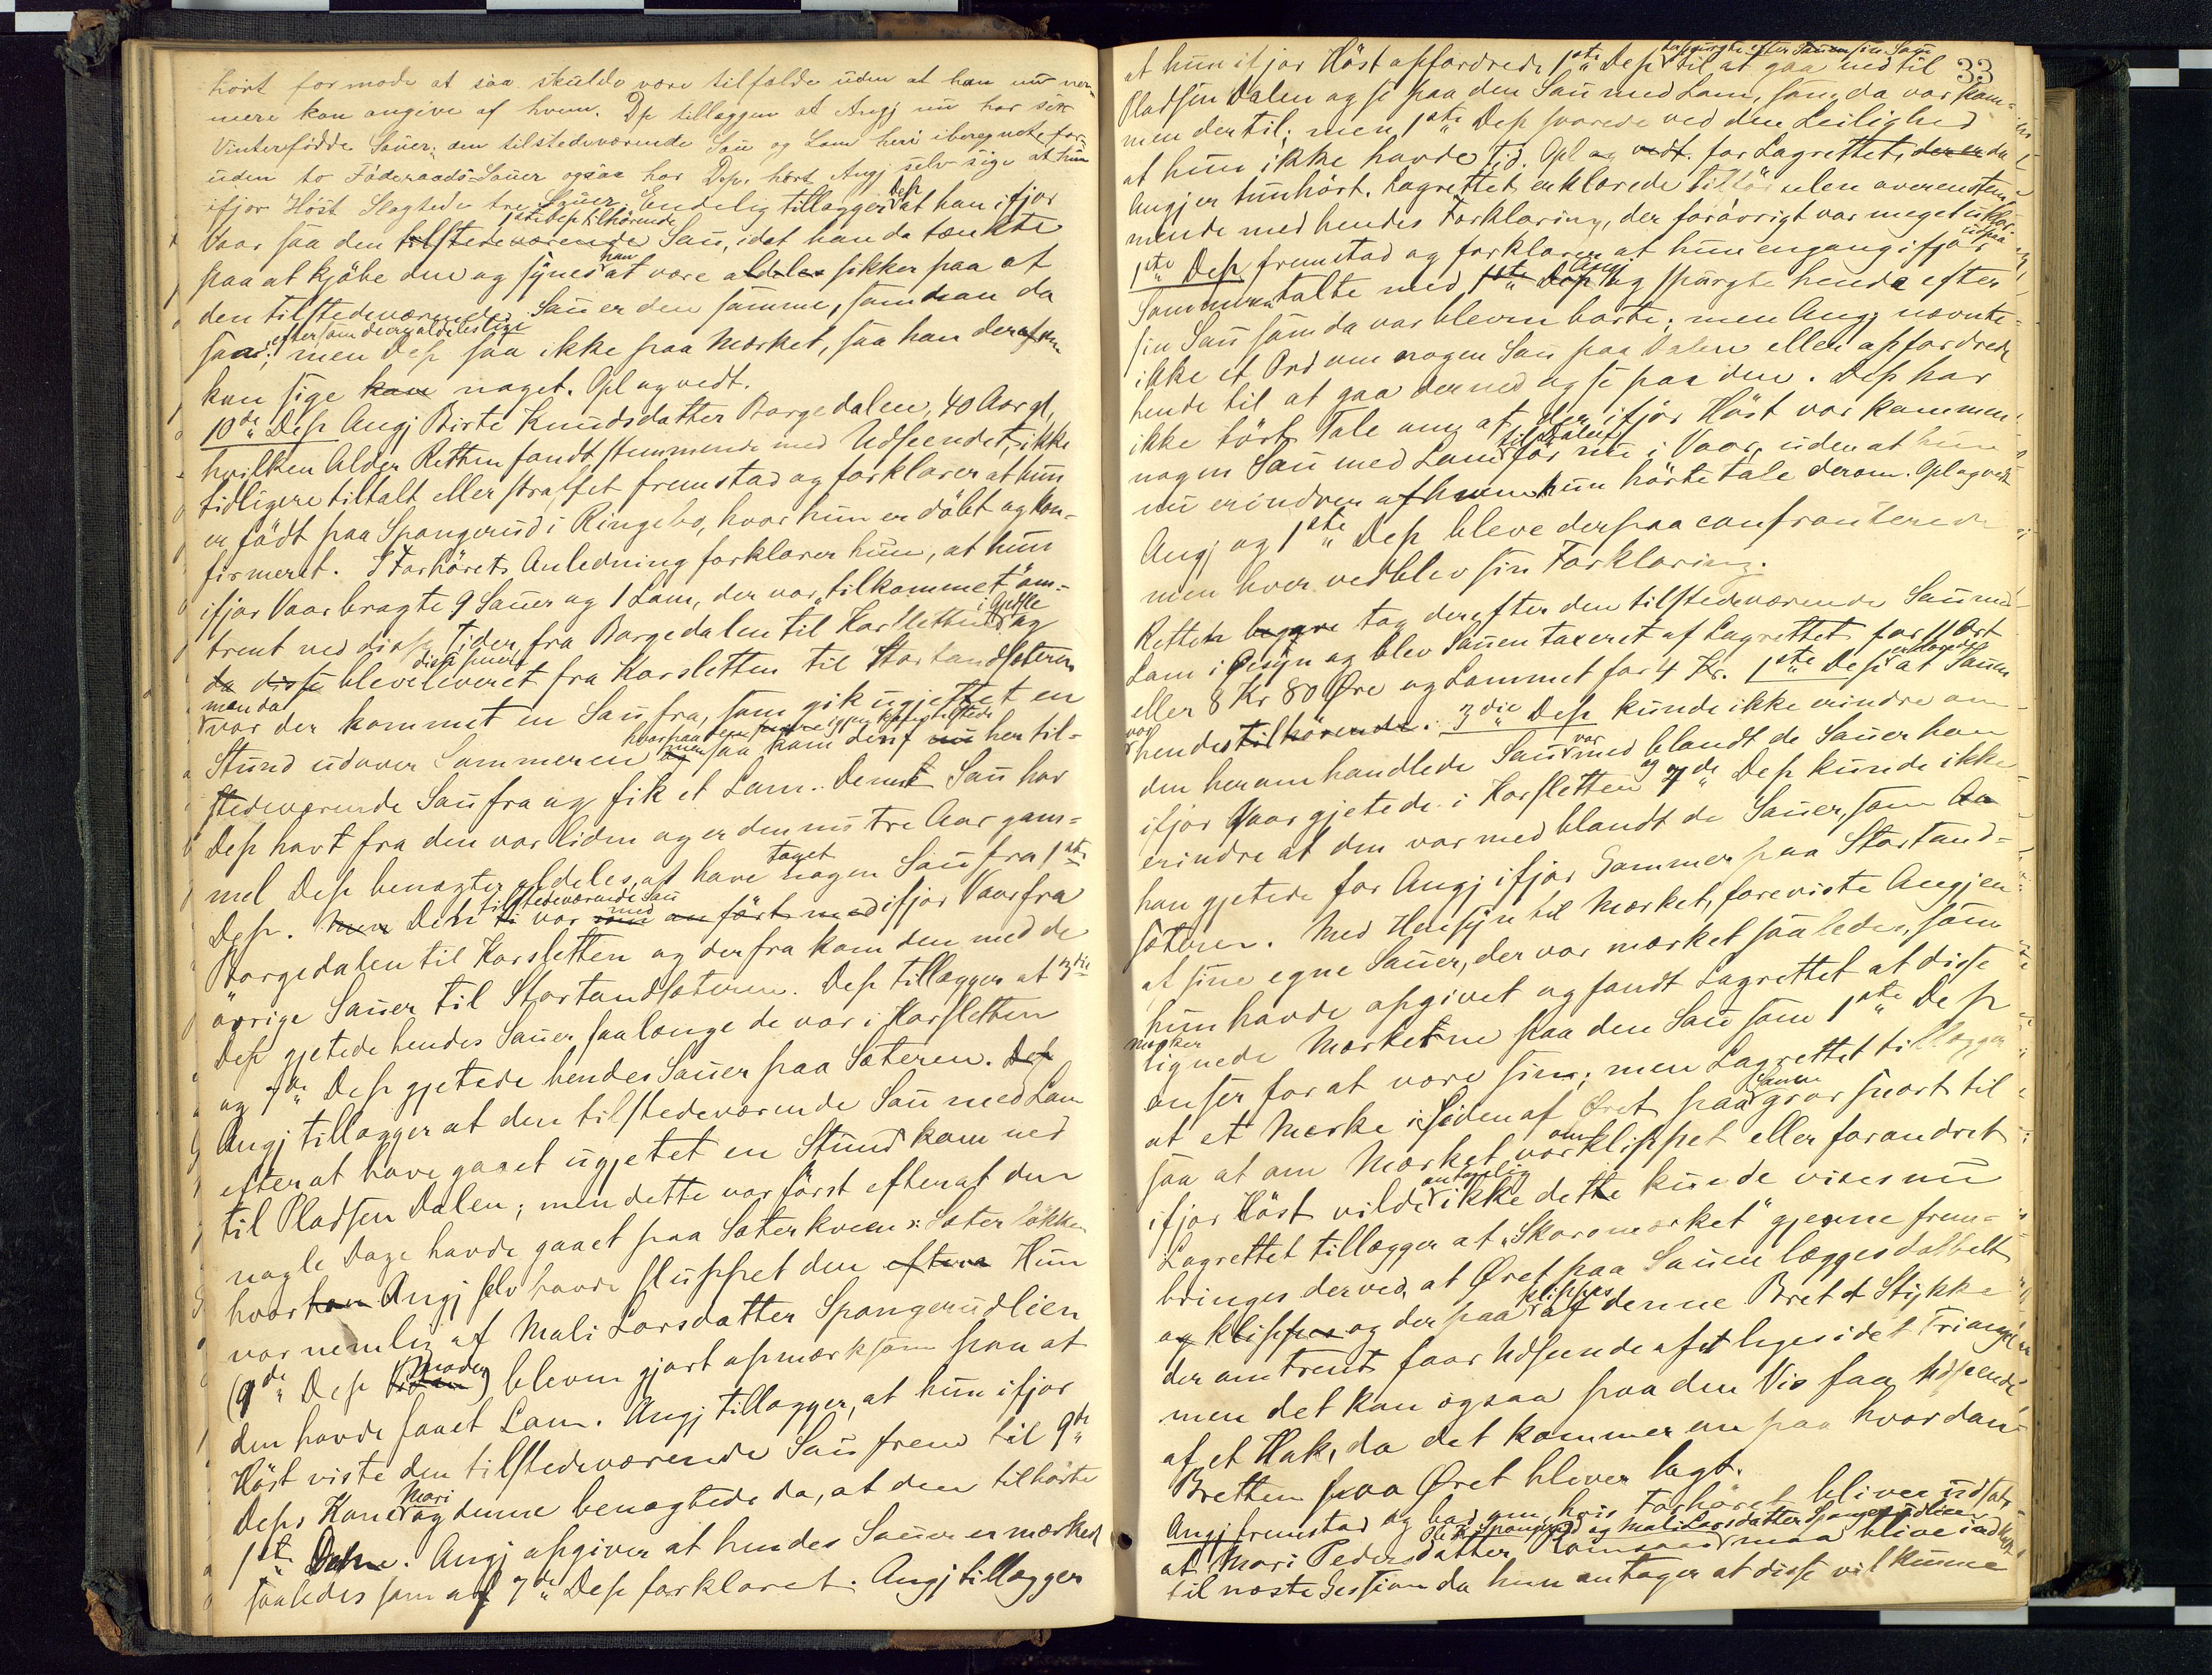 hört formode at saa skulde være tilfælde uden at han nu nær-
mere kan angive af hvem. Dp tillægger at Angj nu har sex
Vinterfödde Sauer, den tilstedeværende Sau og Lam heri iberegnede for-
uden to Föderaads-Sauer ogsaa har Dep. hört Angj selv sige at hun
ifjor Höst Slagtede tre Sauer. Endelig tillægger Dep at han ifjor
Vaar saa den tilstedeværende 1ste Dep tilhörende Sau, idet han da tænkte
paa at kjöbe den og synes han at være aldeles sikker paa at
den tilstedeværende Sau er den samme, som han da
saa, eftersom de er aldeles lige men Dep saa ikke paa Mærket, saa han deraf
kan sige kan noget. Opl og vedt.
10de Dep Angj Birte Knudsdatter Borgedalen, 40 Aar gl,
hvilken Alder Retten fandt stemmende med Udseendet, ikke
tidligere tiltalt eller straffet fremstod og forklarer at hun
er födt paa Spangerud i Ringebo, hvor hun er döbt og kon-
firmeret. I Forhörets Anledning forklarer hun, at hun
ifjor Vaar bragte 9 Sauer og 1 Lam, der var "tilkommet" om-
trent ved disse Tider fra Borgedalen til Korsletten i Gjæsle og
da disse disse Sauer bleve leveret fra Korsletten til Stortandsæteren
man da var der kommet en Sau fra, som gik ugjettet en
Stund udover Sommeren og men saa kom den nu her til-
stedeværende Sau fra og fik et Lam. Denne Sau har
Dep havt fra den var liden og er den nu tre Aar gam-
mel Dep benægter aldeles, at have taget nogen Sau fra 1ste
Dep. Men Den tilstedeværende Sau var med ifjor Vaar fra
Borgedalen til Korsletten og derfra kom den med de
övrige Sauer til Stortandsæteren. Dep tillægger at 3die
Dep gjetede hendes Sauer saalænge de var i Korsletten
og 7de Dep gjetede hendes Sauer paa Sæteren. Dep
Angj tillægger at den tilstedeværende Sau med Lam
efter at have gaaet ugjetet en Stund kom ned
til Pladsen Dalen; men dette var först efter at den
nogle Dage havde gaaet paa Sæterkveen ɔ: Sæterlökken
hvor han Angj selv havde sluppet den eftera Hun
var nemlig af Mali Larsdatter Spangerudlien
(9de Dep Moder) bleven gjort opmærksom paa at
den havde faaet Lam. Angj tillægger, at hun ifjor
Höst viste den tilstedeværende Sau frem til 9de
Deps Kone Mari og denne benægtede da, at den tilhörte
1ste Dep. Angj opgiver at hendes Sauer er mærked
saaledes som af 7de Dep forklaret. Angj tillægger
33
at hun ifjor Höst opfordrede 1ste Dep til at gaa ned til
Pladsen Dalen og se paa den Sau med Lam, som da var kom-
men dertil; men 1ste Dep svarede ved den Leilighed
at hun ikke havde tid. Opl og vedt. for Lagrettet, der er da
Angj er tunhört. Lagrettet erklærede overenstem-
mende med hendes Forklaring, der forövrigt var meget uklar.
1ste Dep fremstod og forklarer at hun engang ifjor
Sommer talte med 1ste Dep Angj og spurgte hende efter
sin Sau som da var bleven borte; men Angj nævnte
ikke et Ord om nogen Sau paa Dalen eller opfordrede
hende til at gaa derned og se paa den. Dep har
ikke hört Tale om at der ifjor Höst var kommen
nogen Sau med Lam til Dalen för nu i Vaar, uden at hun
nu erindrer af hvem hun hörte tale derom. Opl og vedt
Angj og 1ste Dep bleve derpaa confronterede
men hver vedblev sin Forklaring.
Retten begave tog derefter den tilstedeværende Sau med
Lam i Öiesyn og blev Sauen taxeret af Lagrettet for 11 Ort
eller 8 Kr 80 Öre og Lammet for 4 Kr. 1ste Dep erklærede at Sauen
var hendes tilhörende. 3die Dep kunde ikke erindre om
den her omhandlede Sau var med blandt de Sauer han
ifjor Vaar gjetede i Korsletten og 7de Dep kunde ikke
erindre at den var med blandt de Sauer, som han
han gjetede for Angj ifjor Sommer paa Stortand-
sæteren. Med Hensyn til Mærket, foreviste Angj en
af sine egne Sauer, der var mærket saaledes, som
hun havde opgivet og fandt Lagrettet at disse
Mærker lignede Mærkerne paa den Sau som 1ste Dep
anser for at være sin; men Lagrettet tillægger
at et Mærke i Siden af Öret paa Sauen gror snart til
saa at om Mærket var omklippet eller forandret
ifjor Höst vilde antagelig ikke dette kunde vises nu
Lagrettet tillægger at "Skoromærket" gjerne frem-
bringes derved, at Öret paa Sauen lægges dobbelt
og klippes og der paa klippes af denne Bret et Stykke
der omtrent faar Udseende af et ligesidet Triangel
men det kan ogsaa paa den Vis faa Udseende
af et Hak, da det kommer an paa hvordan
Bretten paa Öret bliver lagt.
Angj fremstod og bad om, hvis Forhöret bliver udsat
at Mari Pedersdatter og Mali Larsdatter Spangerudlien maa blive indk
til næste Session da hun antager at disse vil kunne